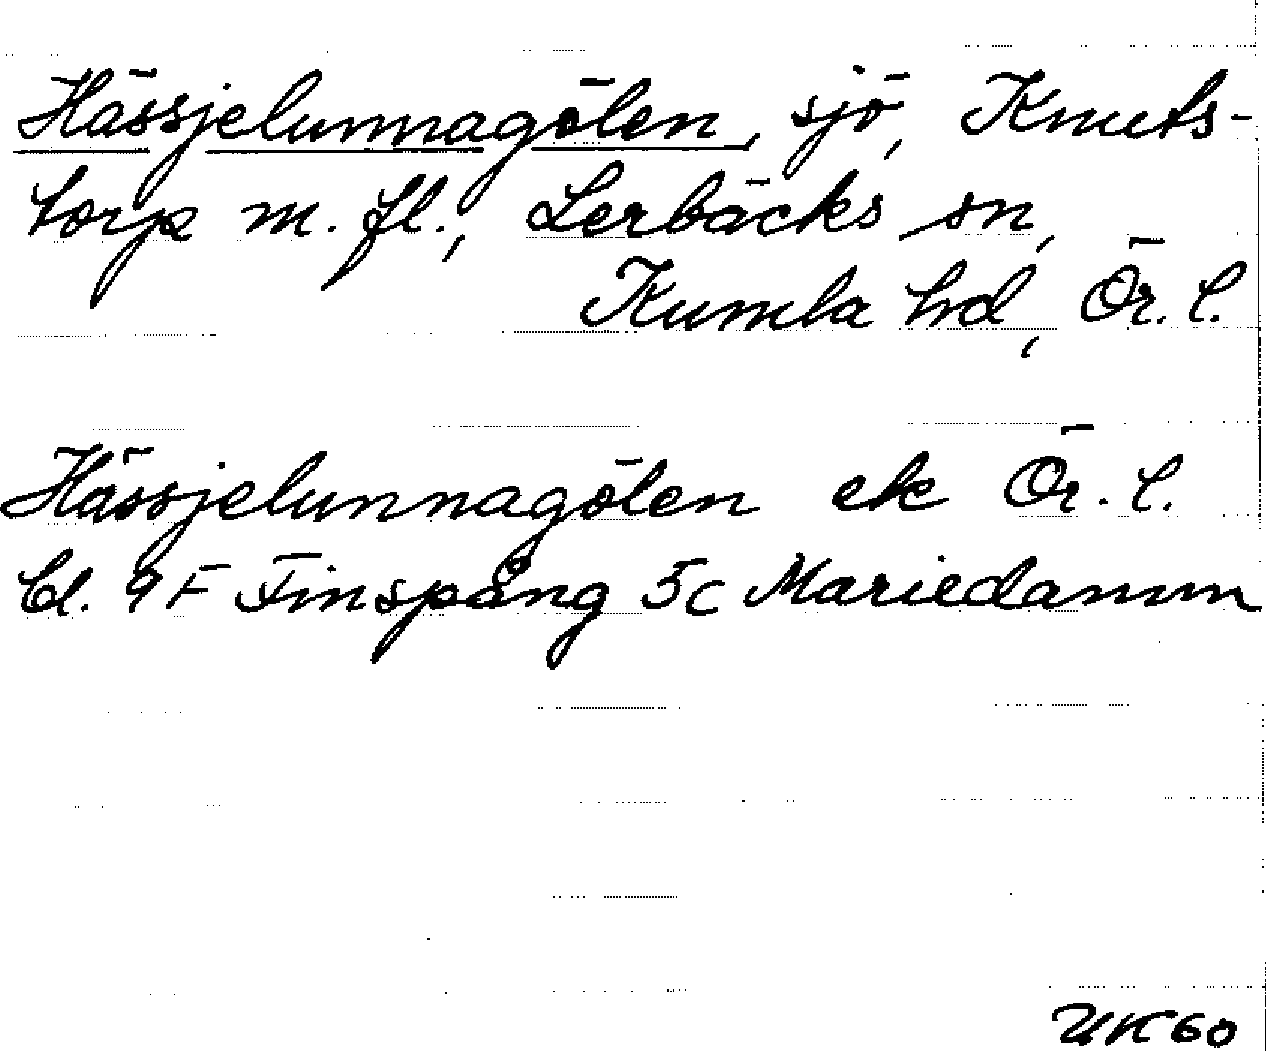 Hässjelunnagölen, sjö, Knuts-
torp m. fl., Lerbäcks sn,
Kumla hd, Ör. l.
Hässjelunnagölen ek Ör. l.
bl. 9F Finspång 5c Mariedamm
UK60